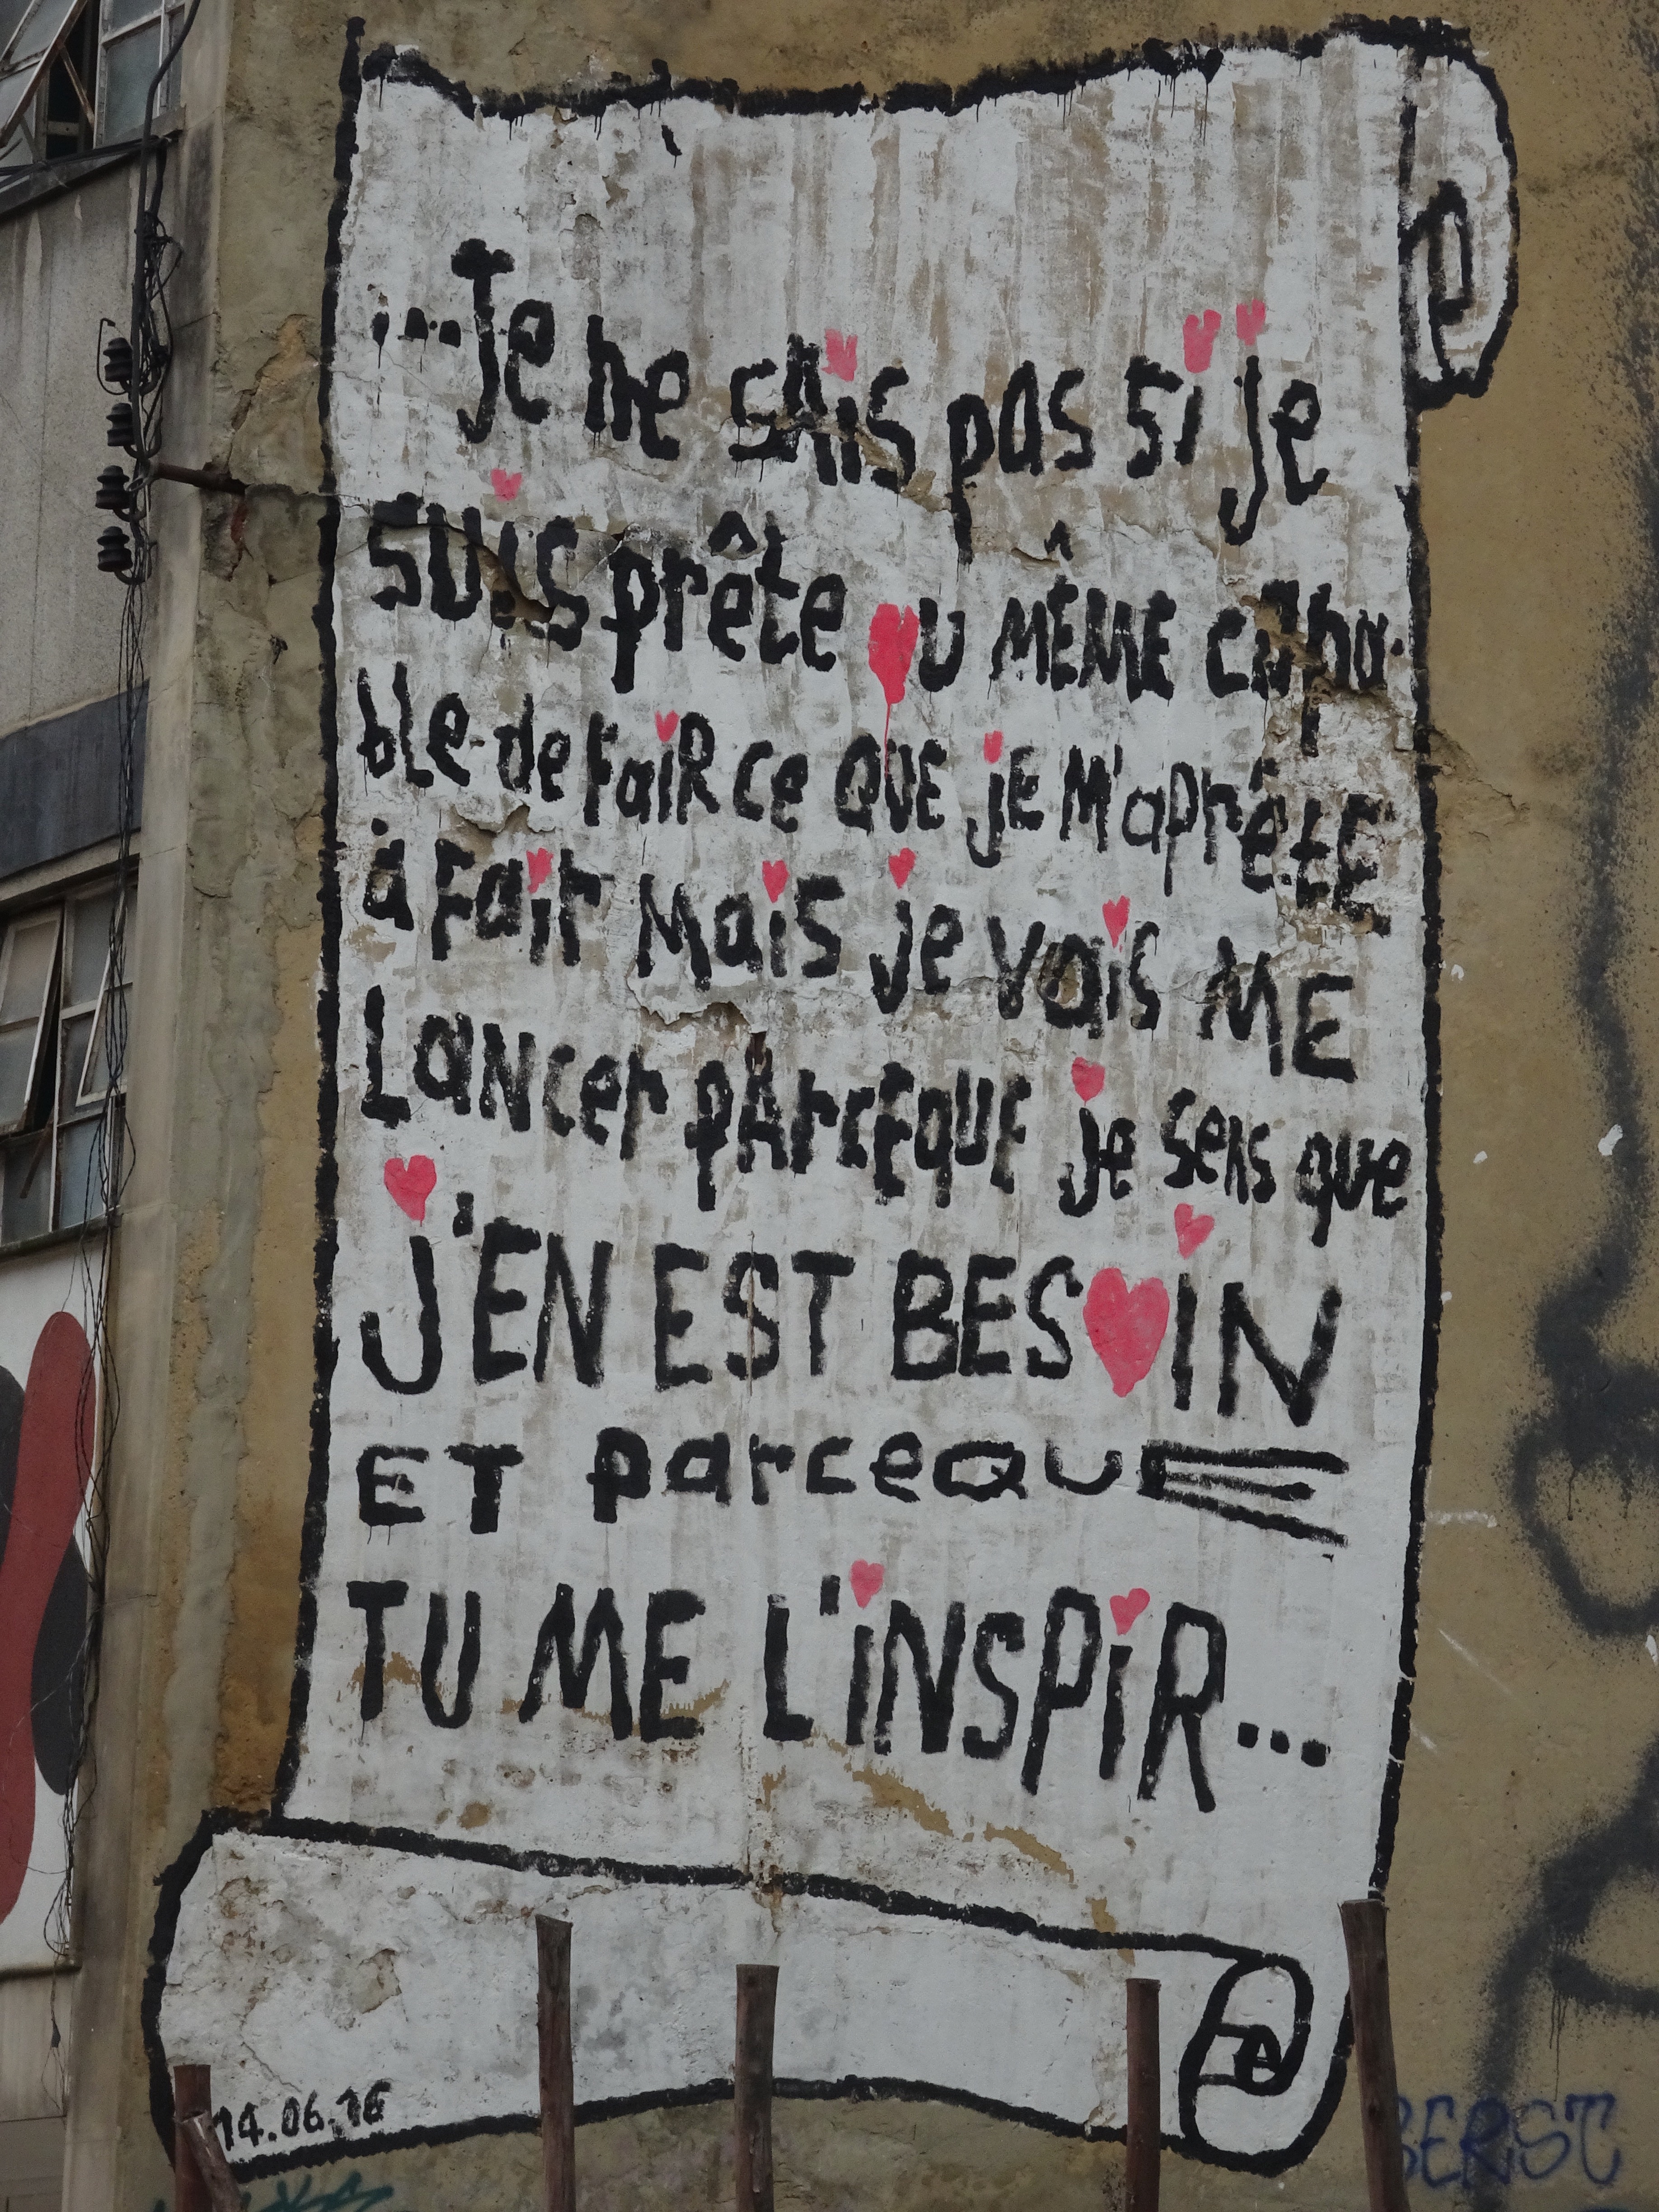 ...Je ne sais pas si je
suis prête ou MÊME capa-
ble de faiR ce QUE je M'aprêtE
à Fair Mais je vais ME
LaNcer pArcEqUE je sens que
J'EN EST BESOIN
ET parceQuE
TU ME L'iNSPiR...
14.06.16